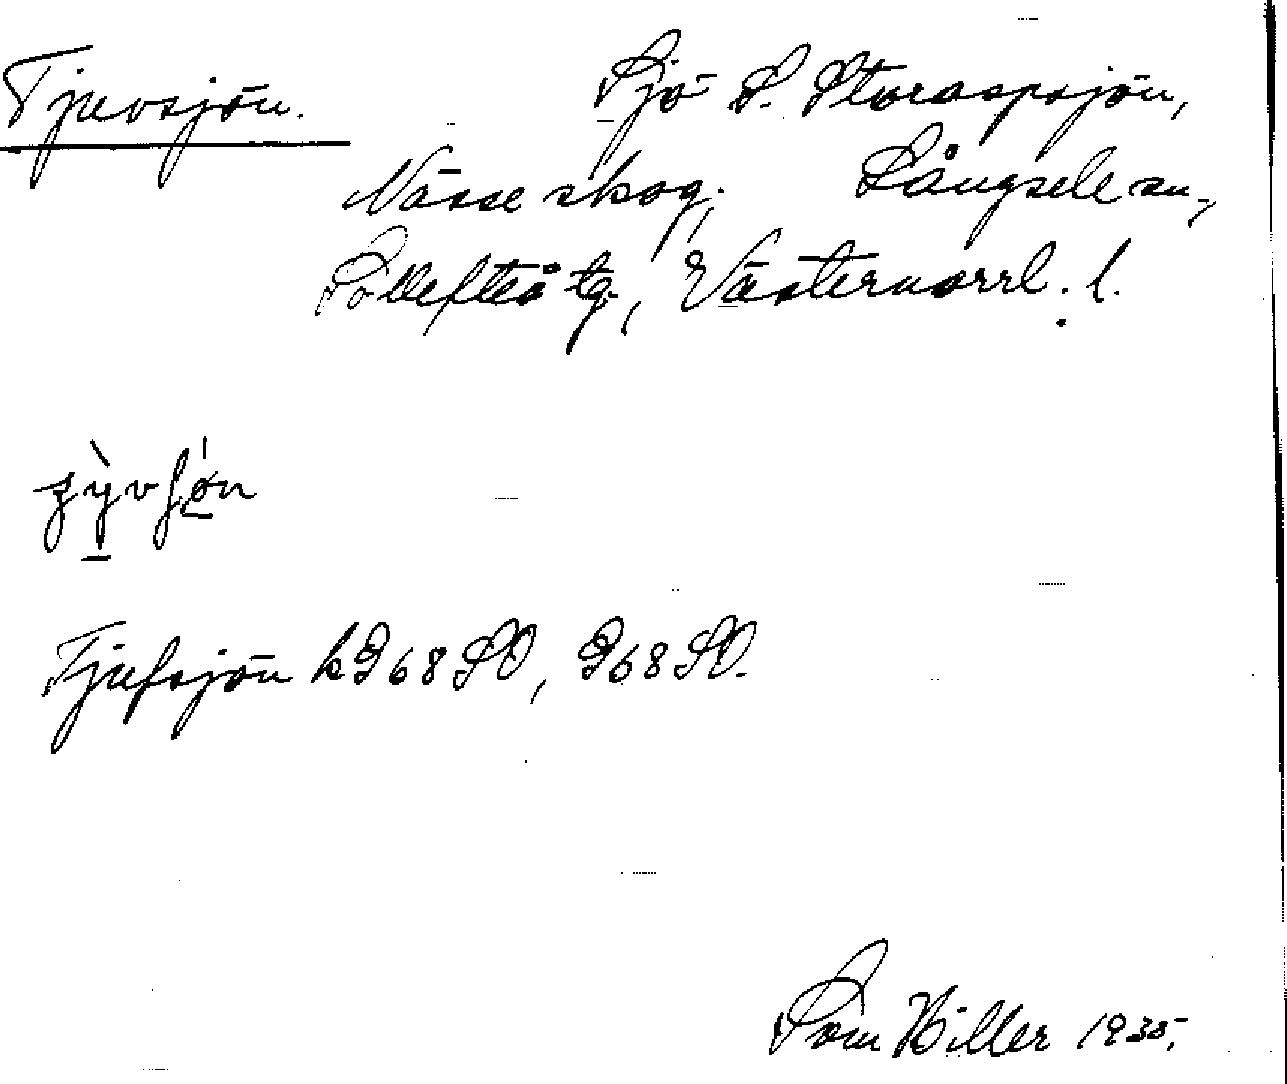 Tjuvsjön. Sjö S. Storaspsjön,
Nässe skog, Långsele sn,
Sollefteå tg, Västernorrl. l.
Tjufsjön k 968 SO, 968 SV.
Tom Hiller 1935.